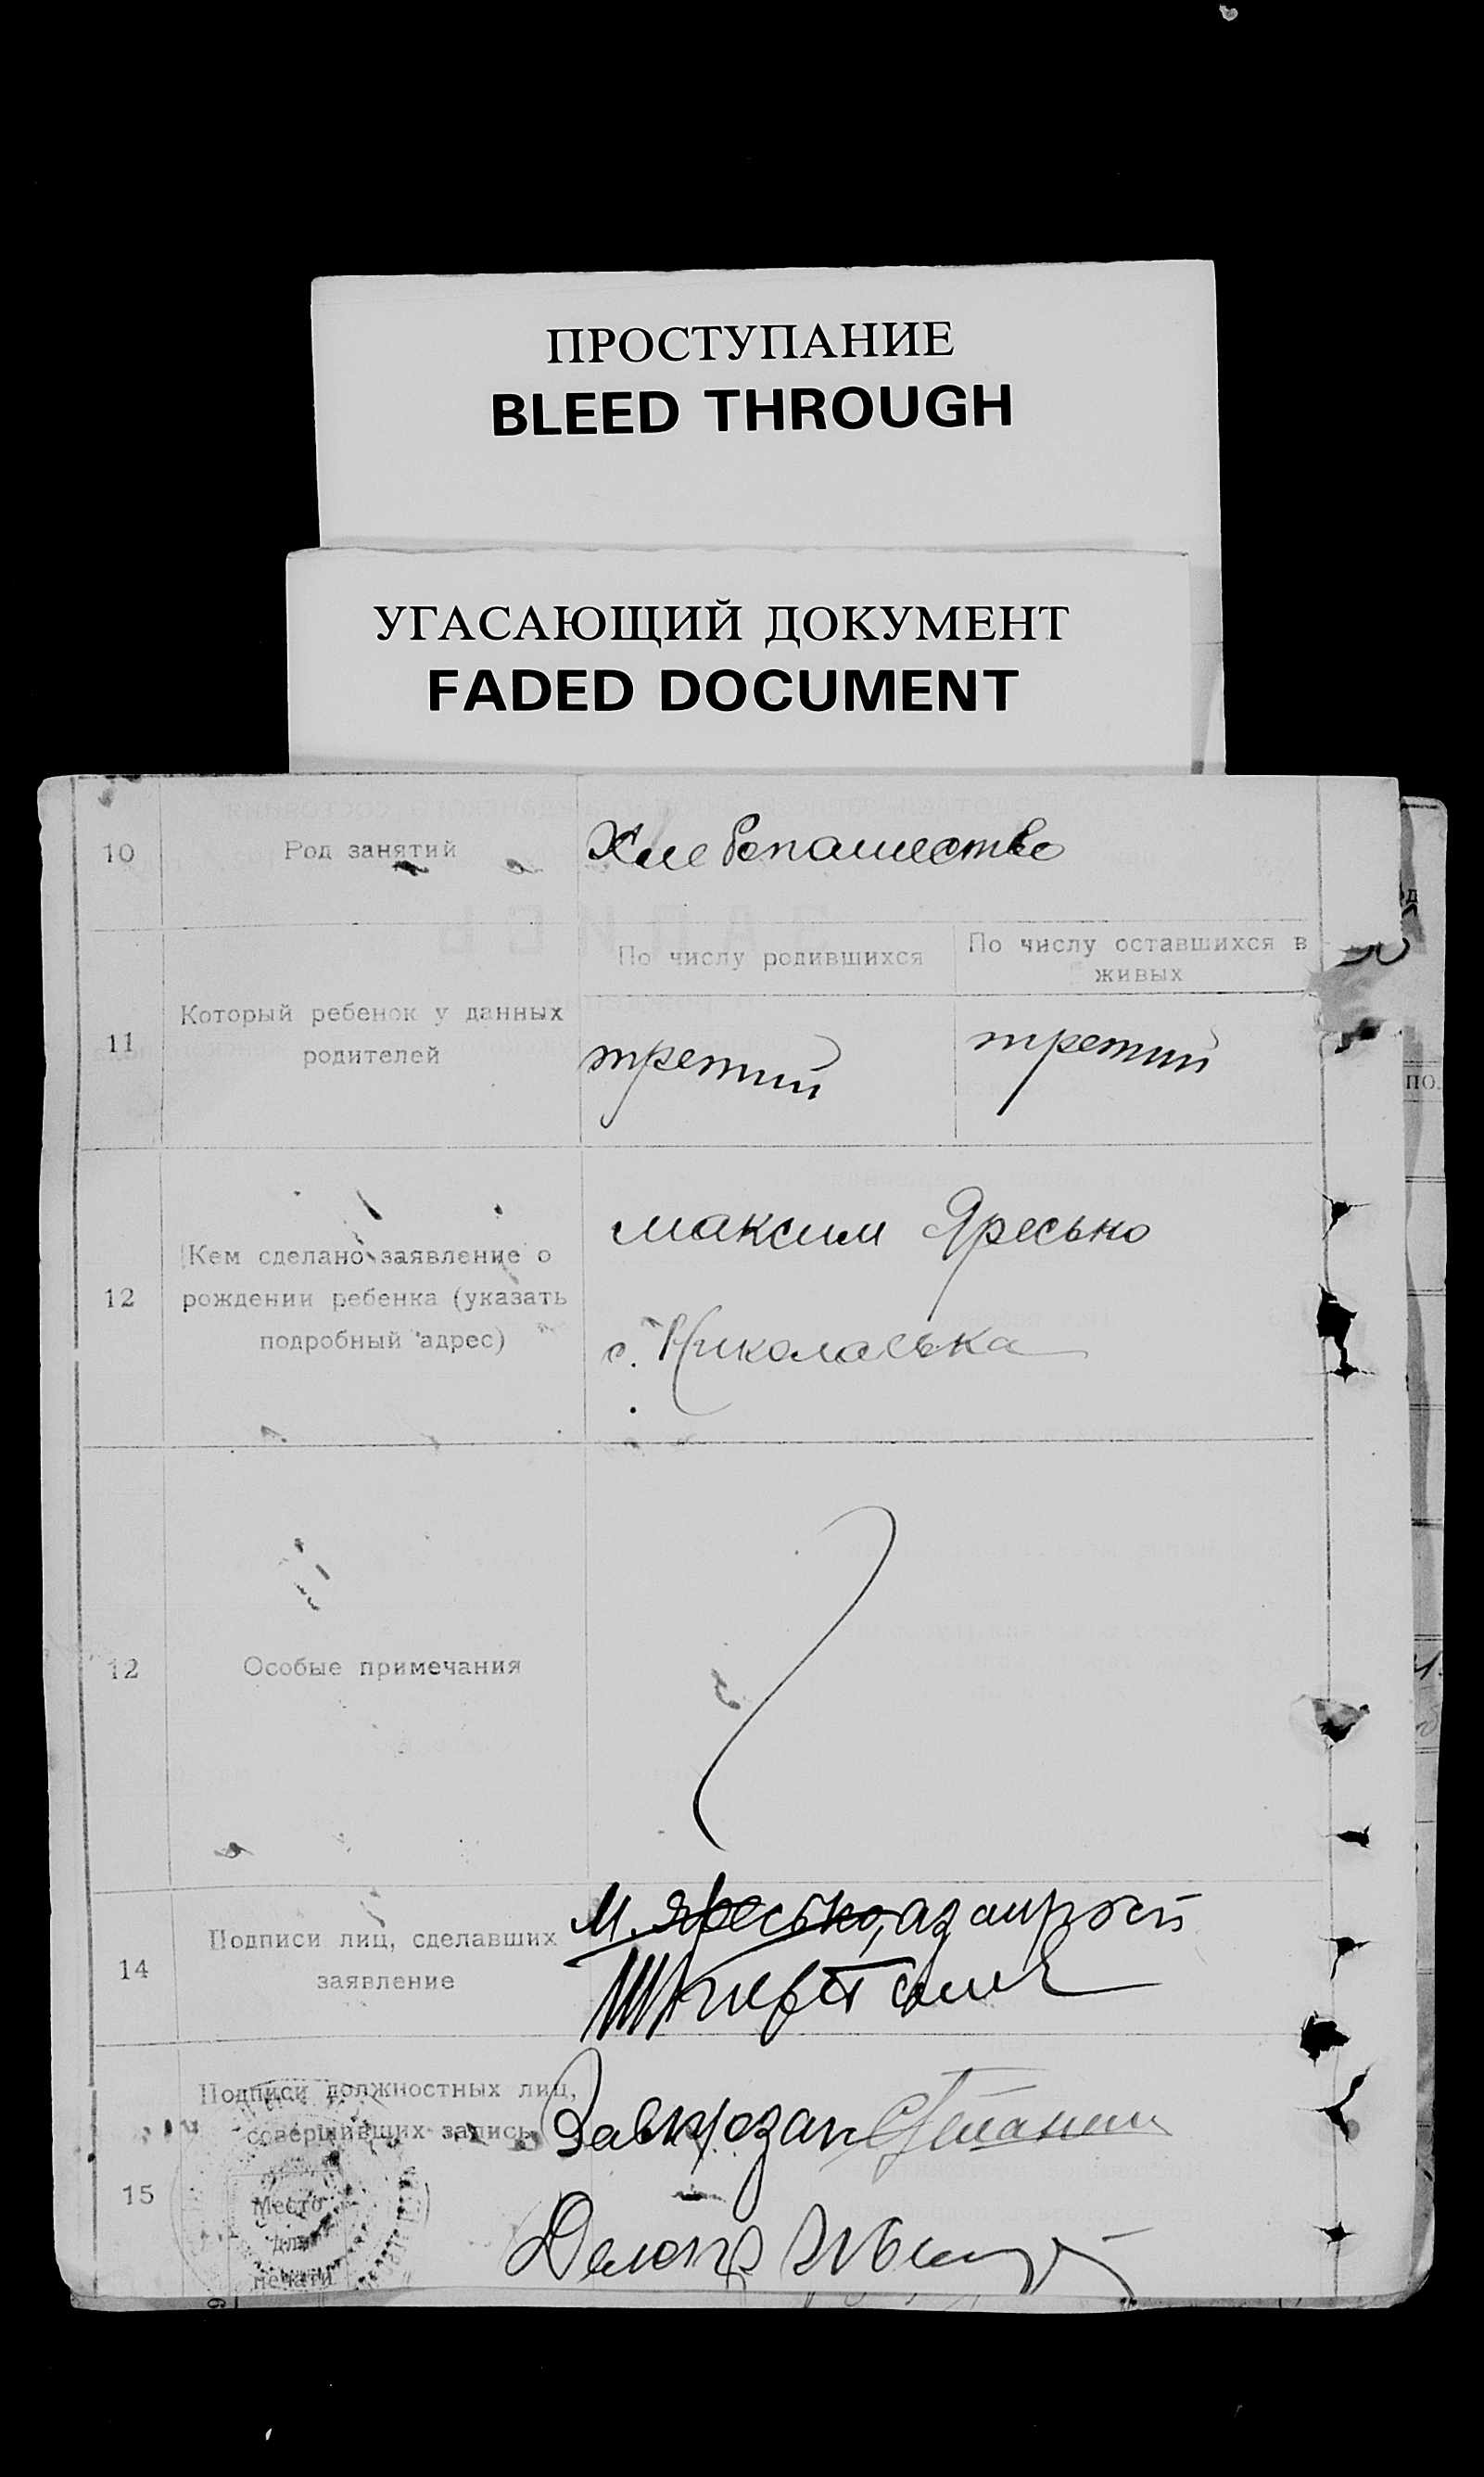 ПРОСТУПАНИЕ
BLEED THROUGH
УГАСАЮЩИЙ ДОКУМЕНТ
FADED DOCUMENT
10
Род занятий
Хлебопашество
11
Который ребенок у данных
родителей
По числу родившихся
По числу оставшихся в
живых
третий
третий
12
Кем сделано заявление о
рождении ребенка (указать
подробный адрес)
Максим Яресько
с. Николаевка
12
Особые примечания
14
Подписи лиц, сделавших
заявление
М. Яресько, а за
15
Подписи должностных лиц,
совершивших запись
Место
для
печати
Делопр